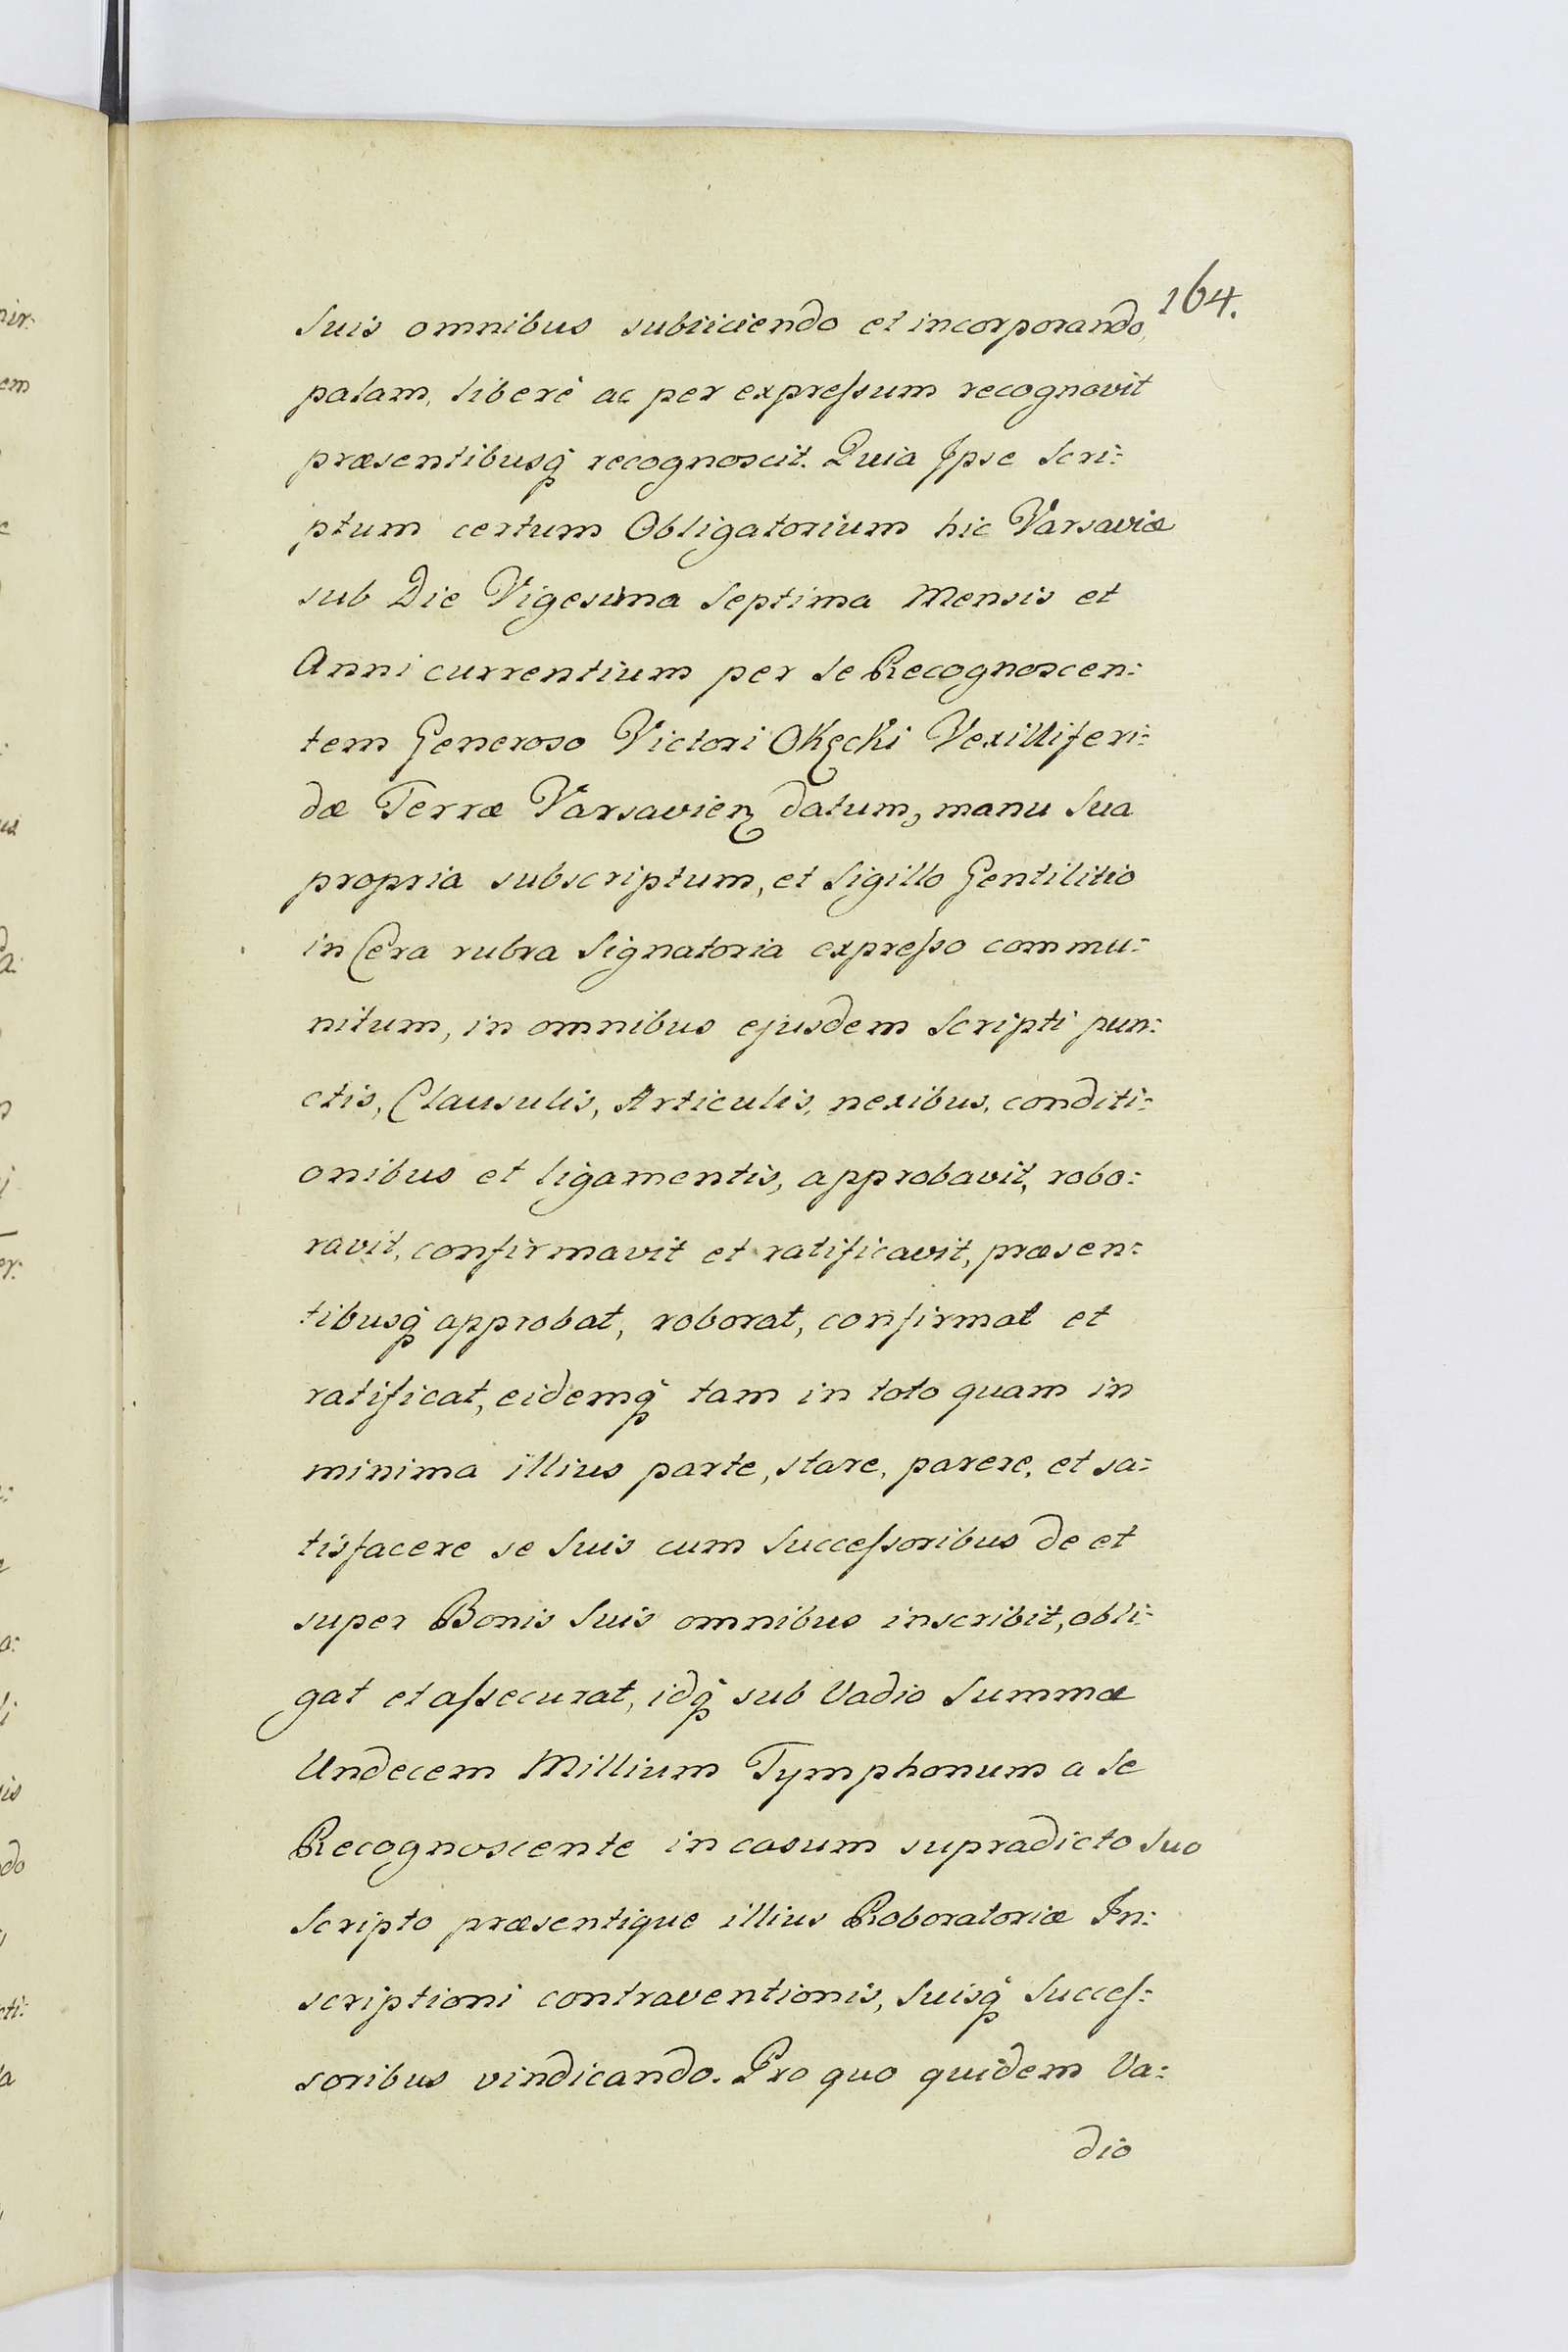 164.
Suis omnibus subiiciendo et incorporando,
palam, liberè ac per expreſsum recognovit
præsentibusq̃ recognoscit. Quia Ipse Scri:
ptum certum Obligatorium hic Varsaviæ
sub Die Vigesima Septima Mensis et
Anni currentium per Se Recognoscen:
tem Generoso Victori Okęcki Vexilliferi:
dæ Terræ Varsavien̄ datum, manu Sua
propria subscriptum, et Sigillo Gentilitio
in Cera rubra Signatoria expreſso commu:
nitum, in omnibus ejusdem Scripti pun:
ctis, Clausulis, Articulis, nexibus, conditi:
onibus et ligamentis, approbavit, robo:
ravit, confirmavit et ratificavit, præsen:
tibusq̃ approbat, roborat, confirmat et
ratificat, eidemq̃ tam in toto quam in
minima illius parte, stare, parere, et sa:
tisfacere se Suis cum Succeſsoribus de et
super Bonis Suis omnibus inscribit, obli:
gat et aſsecurat, idq̃ sub Vadio Summæ
Undecem Millium Tymphonum a Se
Recognoscente in casum supradicto Suo
Scripto præsentique illius Roboratoriæ In:
scriptioni contraventionis, Suisq̃ Succeſ:
soribus vindicando. Pro quo quidem Va:
dio